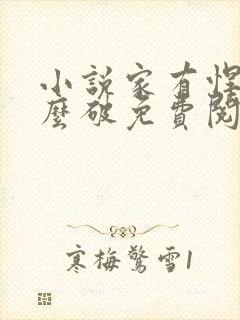 小說家有悍
麼破免費閱
寒梅驚雪1